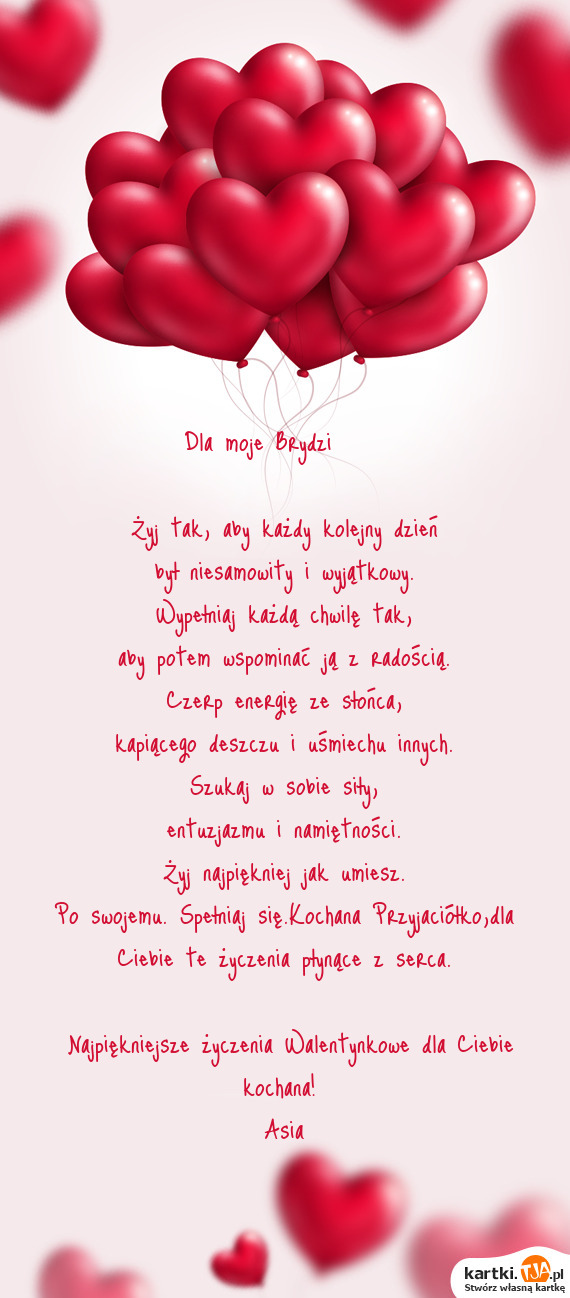 Dla moje Brydzi
Żyj tak, aby każdy kolejny dzień
był niesamowity i wyjątkowy.
Wypełniaj każdą chwilę tak,
aby potem wspominać ją z radością.
Czerp energię ze słońca,
kapiącego deszczu i uśmiechu innych.
Szukaj w sobie siły,
entuzjazmu i namiętności.
Żyj najpiękniej jak umiesz.
Po swojemu. Spełniaj się.Kochana Przyjaciółko,dla
Ciebie te życzenia płynące z serca.
Najpiękniejsze życzenia Walentynkowe dla Ciebie
kochana!
Asia
kartki.TJA.pl
Stwórz własną kartkę